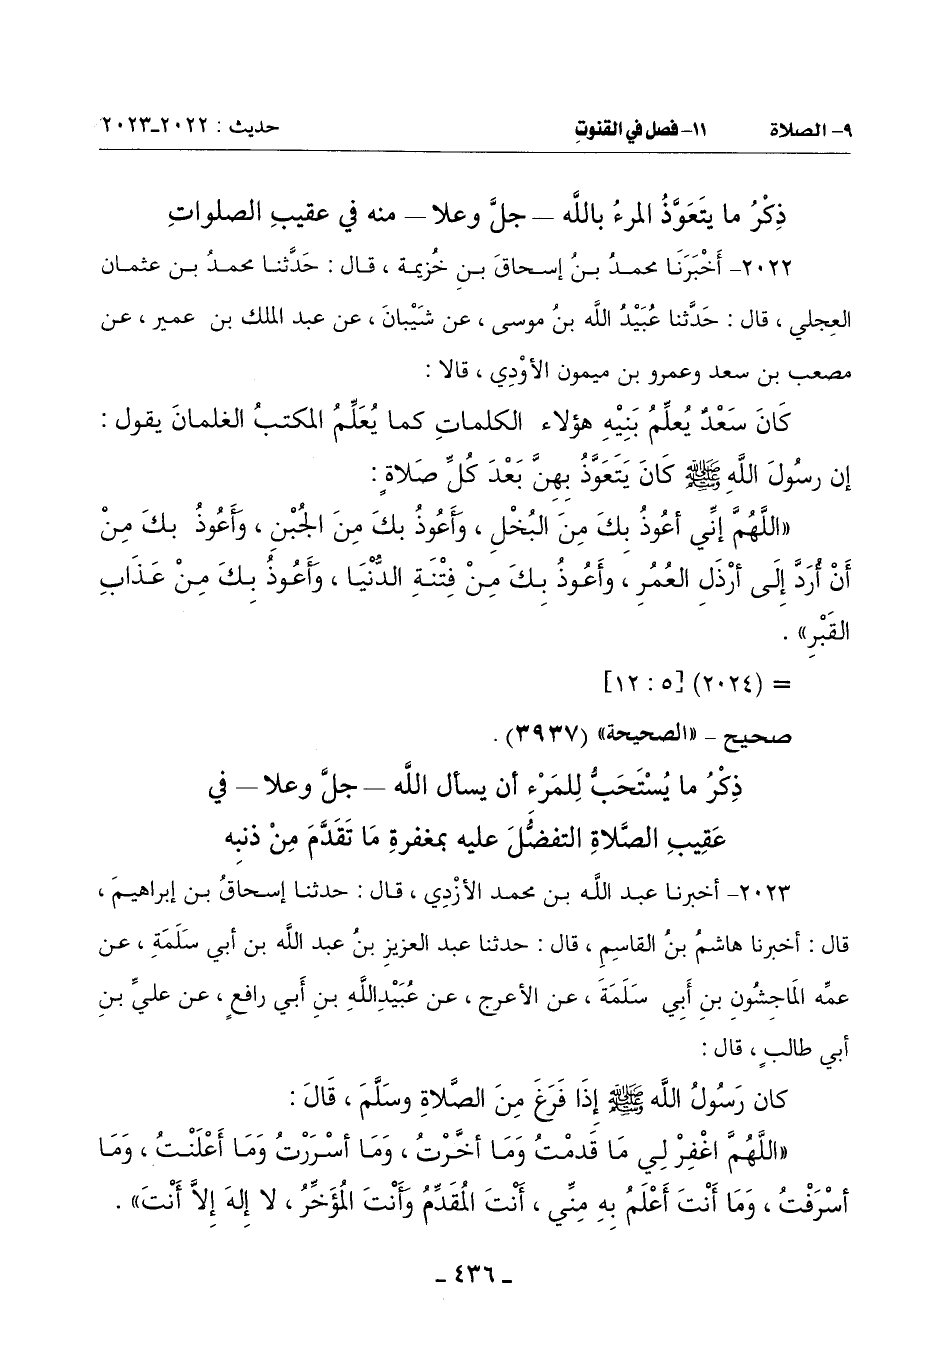 ٩- الصلاة ١١- فصل في القنوتِ حديث : ٢٠٢٢-٢٠٢٣
ذِكْرُ ما يتَعَوَّذُ المرءُ باللَّه -جلَّ وعلا- منه في عقيبِ الصلواتِ
٢٠٢٢- أَخْبَرَنَا محمدُ بنُ إسحاقَ بنِ خُزيمة ، قال : حَدَّثنا محمدُ بن عثمان
العِجلي ، قال : حَدَّثنا عُبَيْدُ اللَّه بنُ موسى ، عن شَيْبانَ ، عن عبد الملك بن عمير ، عن
مصعب بن سعد وعمرو بن ميمون الأوْدِي ، قالا :
كَانَ سَعْدٌ يُعلِّمُ بَنِيْهِ هؤلاء الكلماتِ كما يُعَلِّمُ المكتبُ الغلمانَ يقول :
إن رسُولَ اللَّهِ ﷺ كَانَ يَتَعَوَّذُ بِهِنَّ بَعْدَ كُلِّ صَلاةٍ :
«اللَّهُمَّ إنِّي أعُوذُ بِكَ مِنَ البُخْلِ ، وَأَعُوذُ بكَ مِنَ الجُبْنِ ، وَأَعُوذُ بِكَ مِنْ
أَنْ أُرَدَّ إلَى أرْذَلِ العُمُرِ ، وأَعُوذُ بِكَ مِنْ فِتْنَةِ الدُّنْيَا ، وَأَعُوذُ بِكَ مِنْ عَذَابِ
القَبْرِ» .
= (٢٠٢٤) [٥ : ١٢]
صحيح - «الصحيحة» (٣٩٣٧) .
ذِكْرُ ما يُسْتَحَبُّ لِلمَرْءِ أن يسأل اللَّه -جلَّ وعلا- في
عَقِيبِ الصَّلاةِ التفضُّلَ عليه بمغفرةِ مَا تَقَدَّمَ مِنْ ذنبِه
٢٠٢٣- أخبرنا عبد اللَّه بن محمد الأزْدِي ، قال : حدثنا إسحاقُ بن إبراهيمَ ،
قال : أخبرنا هاشمُ بنُ القاسِمِ ، قال : حدثنا عبد العزيزِ بنُ عبد اللَّه بن أبي سَلَمَةِ ، عن
عمِّه المَاجِشُونِ بنِ أَبِي سَلَمَةَ ، عن الأعرج ، عن عُبَيْدِاللَّهِ بنِ أَبي رافعٍ ، عن عليِّ بنِ
أبي طالبٍ ، قال :
كان رَسُولُ اللَّه ﷺ إذَا فَرَغَ مِنَ الصَّلاةِ وسَلَّمَ ، قَالَ :
«اللَّهُمَّ اغْفِرْ لِي مَا قَدمْتُ وَمَا أخَّرْتُ ، وَمَا أسْرَرْتُ وَمَا أَعْلَنْتُ ، وَمَا
أسْرَفْتُ ، وَمَا أنْتَ أَعْلَمُ بِهِ مِنِّي ، أَنْتَ المُقَدِّمُ وَأَنْتَ المُؤَخِّرُ ، لا إلهَ إلاَّ أَنْتَ» .
- ٤٣٦ -